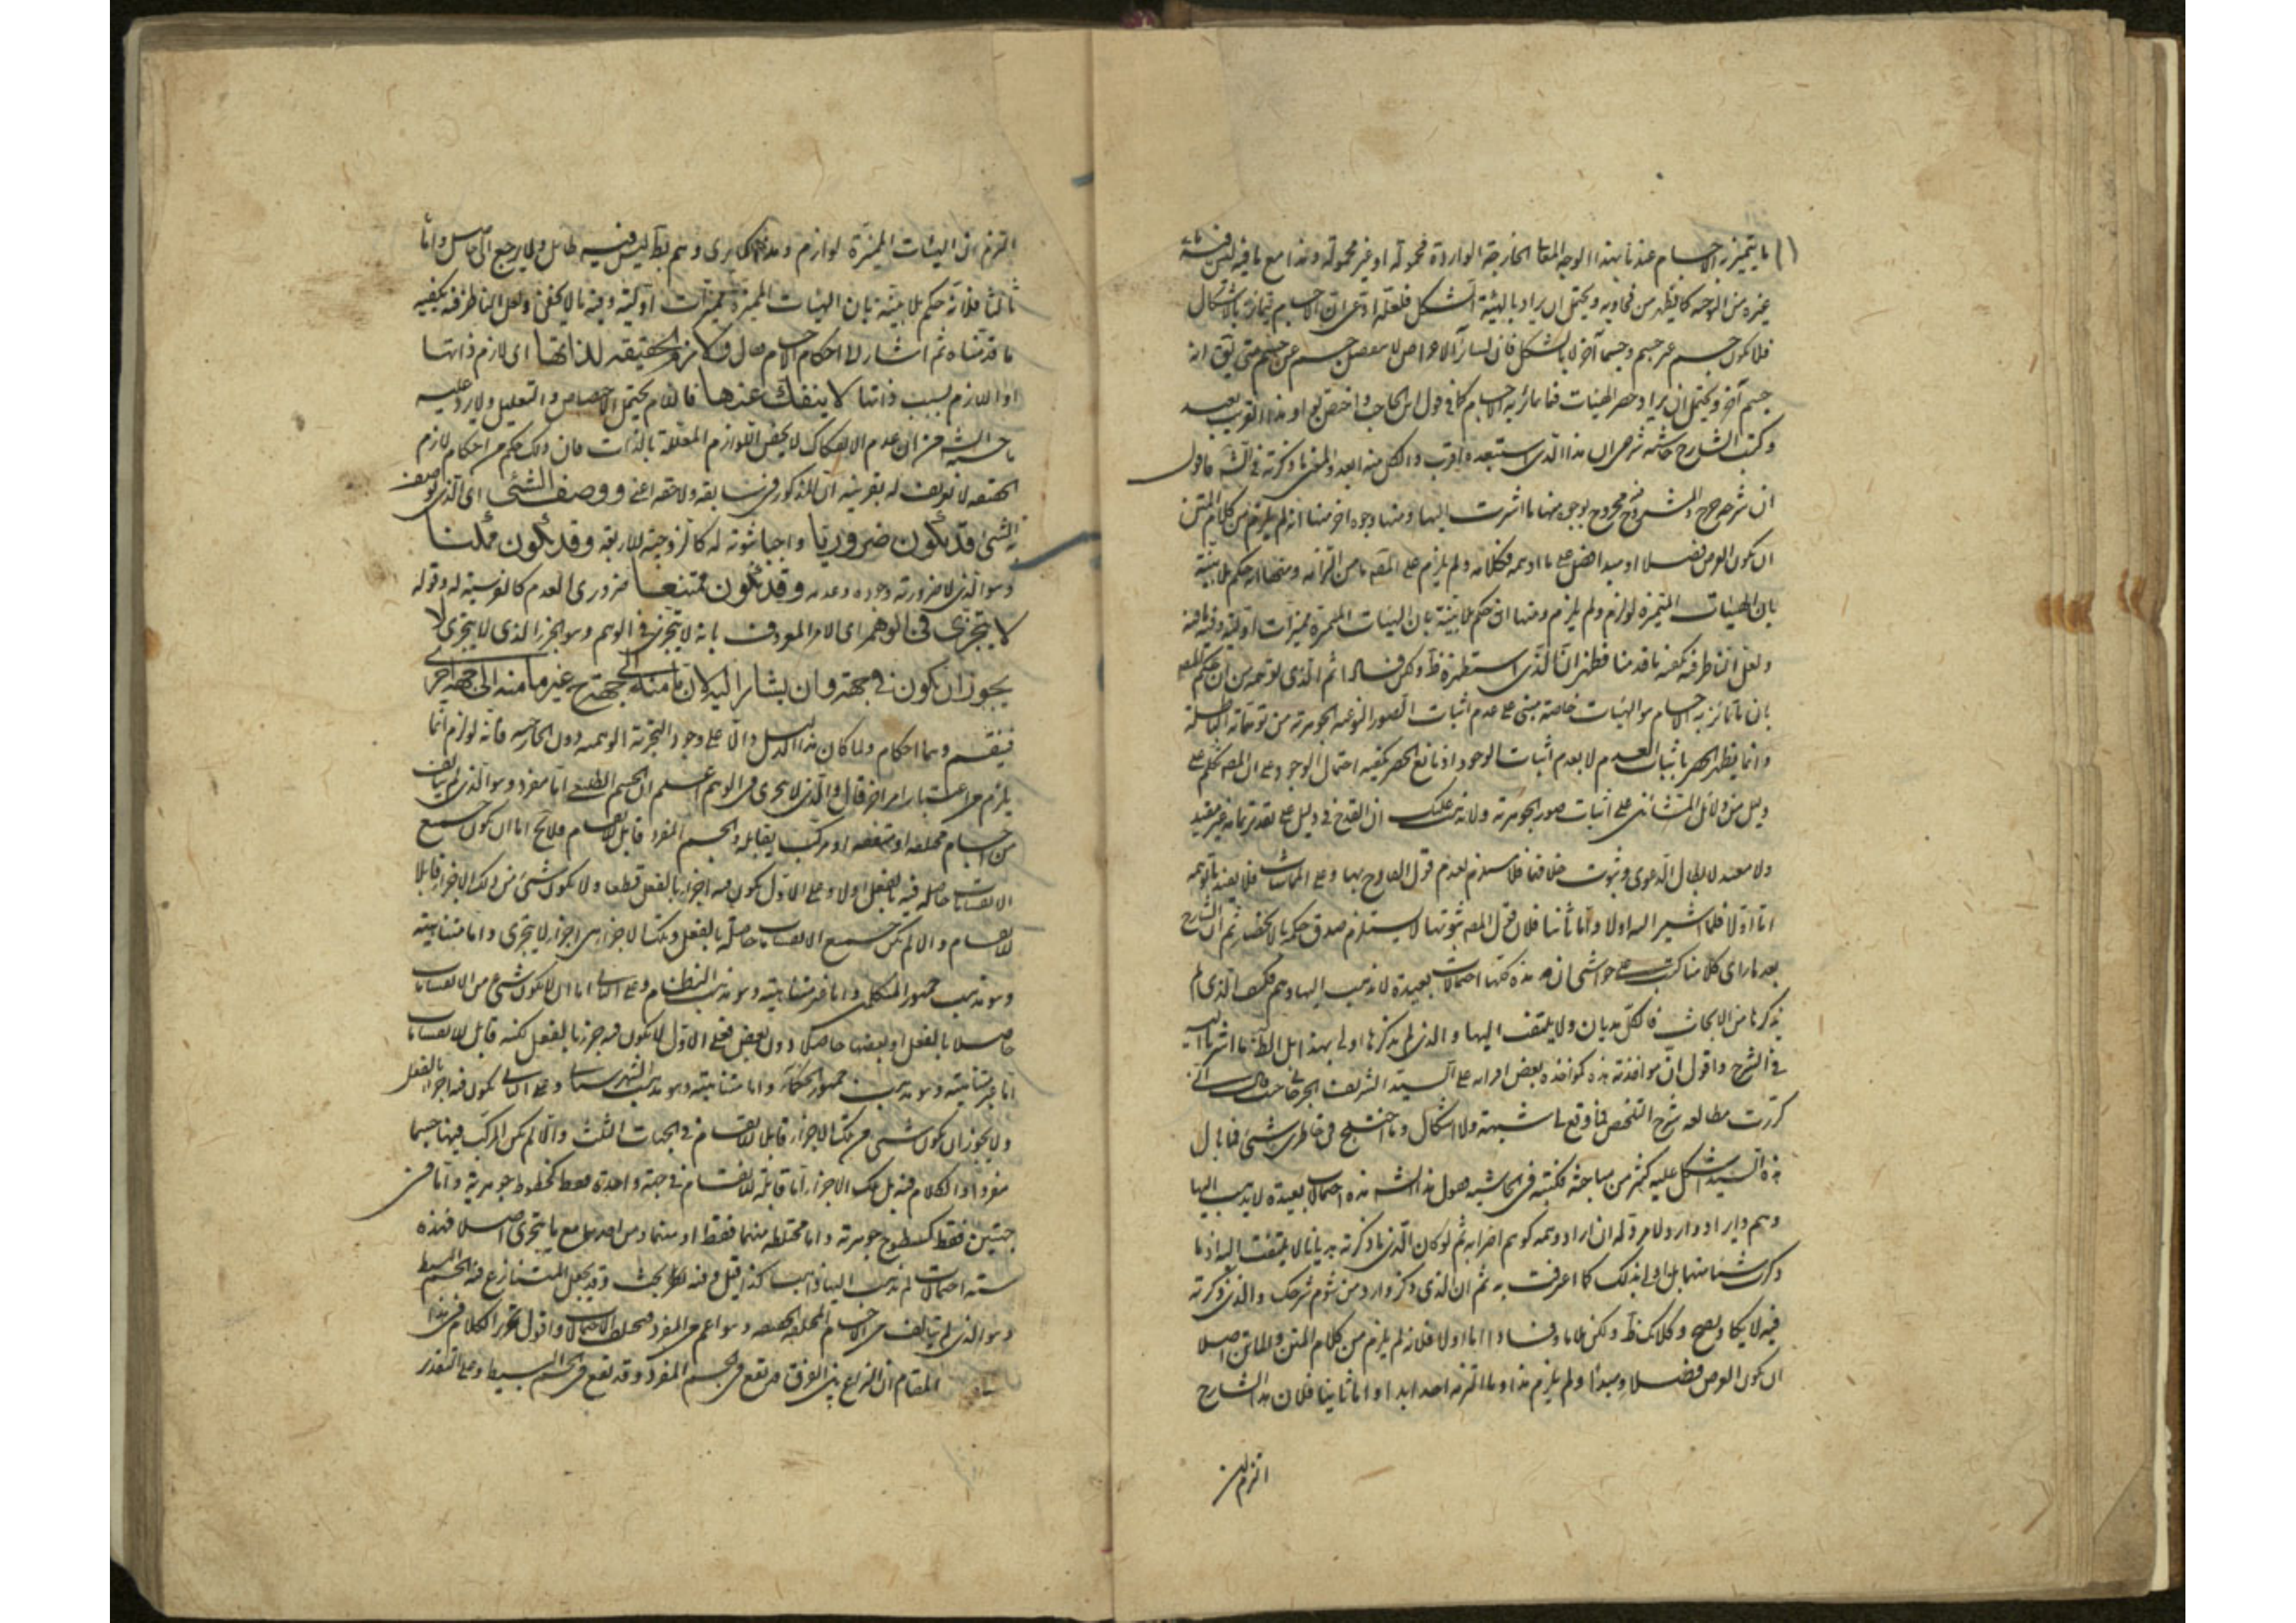 ما يتميز به الاجسام عندنا بهذا الوجه المعا الخارجة الواردة محمولة او غير محمولة وهذا مع ما فيه ليس فيه
غيره من الوجه كما يظهر من فحاويه ويحتمل ان يراد بالهيئة الشكل فلعله ادعى ان الاجسام تتمايز بالاشكال
فلا يكون جسم غير جسم وجسما آخر لا بالشكل فان لسائر الاعراض لا جسم عن جسم حتى يق انه
جسم آخر ويحتمل ان يراد حصر الهيئات فيما يمتاز به الاجسام كما في قول ابن الحاجب واختص او هذا اقرب بعيد
وكتب الشارح حاشية شرحه ان هذا الذي استبعده اقرب والكل منه ابعد والمعنى ما ذكرته في الش فاقول
ان شرحه جرح والمشروح مجروح بوجوه منها ما اشرت اليها ومنها وجوه اخر منها انه لم يلزم من كلام المتن
ان يكون العرض فصلا او مبدا فصل على ما اوهمه فكلامه ولم يلزم على المص ما من التزامه ومنها انه حكم بلا بينة
بان الهيئات المتميزة لوازم ولم يلزم ومنها انه حكم بلا بينة بان الهيئات المميزة مميزات اولية وفيه ما فيه
ولعل الناظر فيه يكفيه ما قدمنا فظهر ان الذي استظهره ظ ولكن فساده ثم الذي توهمه من ان حكم المص
بان ما تمايز به الاجسام هو الهيئات خاصة مبني على عدم اثبات الصور النوعية الجوهرية من توهماته الباطلة
وانما يظهر الحصر باثبات العدم لا بعدم اثبات الوجود اذ مانع الحصر يكفيه احتمال الوجود وعلى ان المص تكلم على
دليل من دلائل المشائين على اثبات صور الجوهرية ولا يذهب عليك ان القدح في دليل على تقدير تمامه غير مفيد
ولا مفيد لابطال الدعوى وثبوت خلافها فلا يستلزم لعدم قول القادح بها وعلى المماشات فلا يفيد ما توهمه
اما اولا فلما اشير اليه اولا واما ثانيا فلان قول المص بثبوتها لا يستلزم صدق حكمه بالانحصار ثم ان الشارح
بعد ما راى كلامنا كتب على حواشي ان هذه كلها احتمالات بعيدة لا يذهب اليها وهم فكيف الذي لم
يذكرها من الابحاث فالكل هذيان ولا يلتفت اليها والذي لم يذكرها اولى بهذا اهل الظ ما اشرنا اليه
في الشرح واقول ان مواخذته هذه كمواخذة بعض اقرانه على السيد الشريف الجرجاني حيث قال اني
كررت مطالعة شرح التلخيص فما وقع لي شبهة ولا اشكال وما اختلج في خاطري شيء فما بال
هذا السيد اشكل عليه كثير من مباحثه فكتبت في الحاشية حول هذه احتمالات بعيدة لا يذهب اليها
ذكرت شيئا منها بل اولى بذلك كما اعرفت به ثم ان الذي ذكر وارد من شوم شرحك والذي ذكرته
فيه لا يكاد يصح وكلامك ظ ولكن بلا ما وفسادا اما اولا فلانه لم يلزم من كلام المتن والماتن اصلا
ان يكون العرض فصلا ومبدا ولم يلزم هذا وما التزمه احد ابدا واما ثانيا فلان هذا الشارح
التزم ان
التزم ان الهيئات المميزة لوازم وهذا وهم بط ليس فيه طائل ولا يرجع الى حاصل واما
ثالثا فلانه حكم بلا بينة بان الهيئات المميزة مميزات اولية وفيه ما لا يخفى ولعل الناظر فيه يكفيه
ما قدمناه ثم اشار الى احكام الاجسام قال ولازم الحقيقة لذاتها اي لازم ذاتها
او اللازم بسبب ذاتها لا ينفك عنها فاللام يحتمل الاختصاص والتعليل ولا يرد عليه
ما من ان عدم الانفكاك لا يخص اللوازم المعللة بالذات فان ذلك حكم من احكام لازم
الحقيقة لا تعريف له بقرينة ان المذكور في سابقه ولاحقه اعني ووصف الشئ اي الذي يوصف
به الشئ قد يكون ضروريا واجبا ثبوته له كالزوجية للاربعة وقد يكون ممكنا
وهو الذي لا ضرورة وجوده وعدمه وقد يكون ممتنعا ضروري العدم كالفرسية له وقوله
لا يتجزى في الوهم اي الامر المعروف بانه لا يتجزى في الوهم وهو الجزء الذي لا يتجزى لا
يجوز ان يكون في جهة وان يشار اليه لان ما منه الى جهة غير ما منه الى جهة اخرى
فينقسم وهما احكام ولما كان هذا الدليل دالا على وجود التجزية الوهمية دون الخارجية فانه لوازم انما
يلزم من اعتبار امر اخر قال والذي لا يتجزى في الوهم اعلم ان الجسم الطبيعي اما مفرد وهو الذي لم يتالف
من اجسام مختلفة او متفقة او مركب يقابله والجسم المفرد قابل للانقسام فلا يخ اما ان يكون جميع
الانقسامات حاصلة فيه بالفعل اولا وعلى الاول يكون فيه اجزاء بالفعل قطعا ولا يكون شئ من تلك الاجزاء قابلا
للانقسام والا لم يكن جميع الانقسامات حاصلة بالفعل وتلك الاجزاء هي اجزاء لا يتجزى واما متناهية
وهو مذهب جمهور المتكلمين واما غير متناهية وهو مذهب النظام وعلى الثاني اما ان لا يكون شئ من الانقسامات
حاصلا بالفعل او بعضها حاصلا دون بعض فعلى الاول لا يكون فيه جزء بالفعل لكنه قابل للانقسامات
اما غير متناهية وهو مذهب جمهور الحكماء واما متناهية وهو مذهب الشهرستاني وعلى الثاني يكون فيه اجزاء بالفعل
ولا يجوز ان يكون شئ من تلك الاجزاء قابلا للانقسام في الجهات الثلث والا لم يكن المركب فيها جسما
مفردا والكلام فيه بل تلك الاجزاء اما قابلة للانقسام في جهة واحدة فقط كخطوط جوهرية واما في
جهتين فقط كسطوح جوهرية واما مختلطة منهما فقط او منهما ومن احديهما مع ما لا يتجزى اصلا فهذه
ستة احتمالات لم يذهب اليها ذاهب كذا قيل وفيه بحث وقد يجعل المتنازع فيه الجسم البسيط
وهو الذي لم يتالف من الاجسام المختلفة الحقيقة وهو اعم من المفرد فيختلف الاحتمالات واقول تحرير الكلام في هذا
المقام ان النزاع بين الفرق قد يقع في الجسم المفرد وقد يقع في الجسم البسيط وعلى التقدير